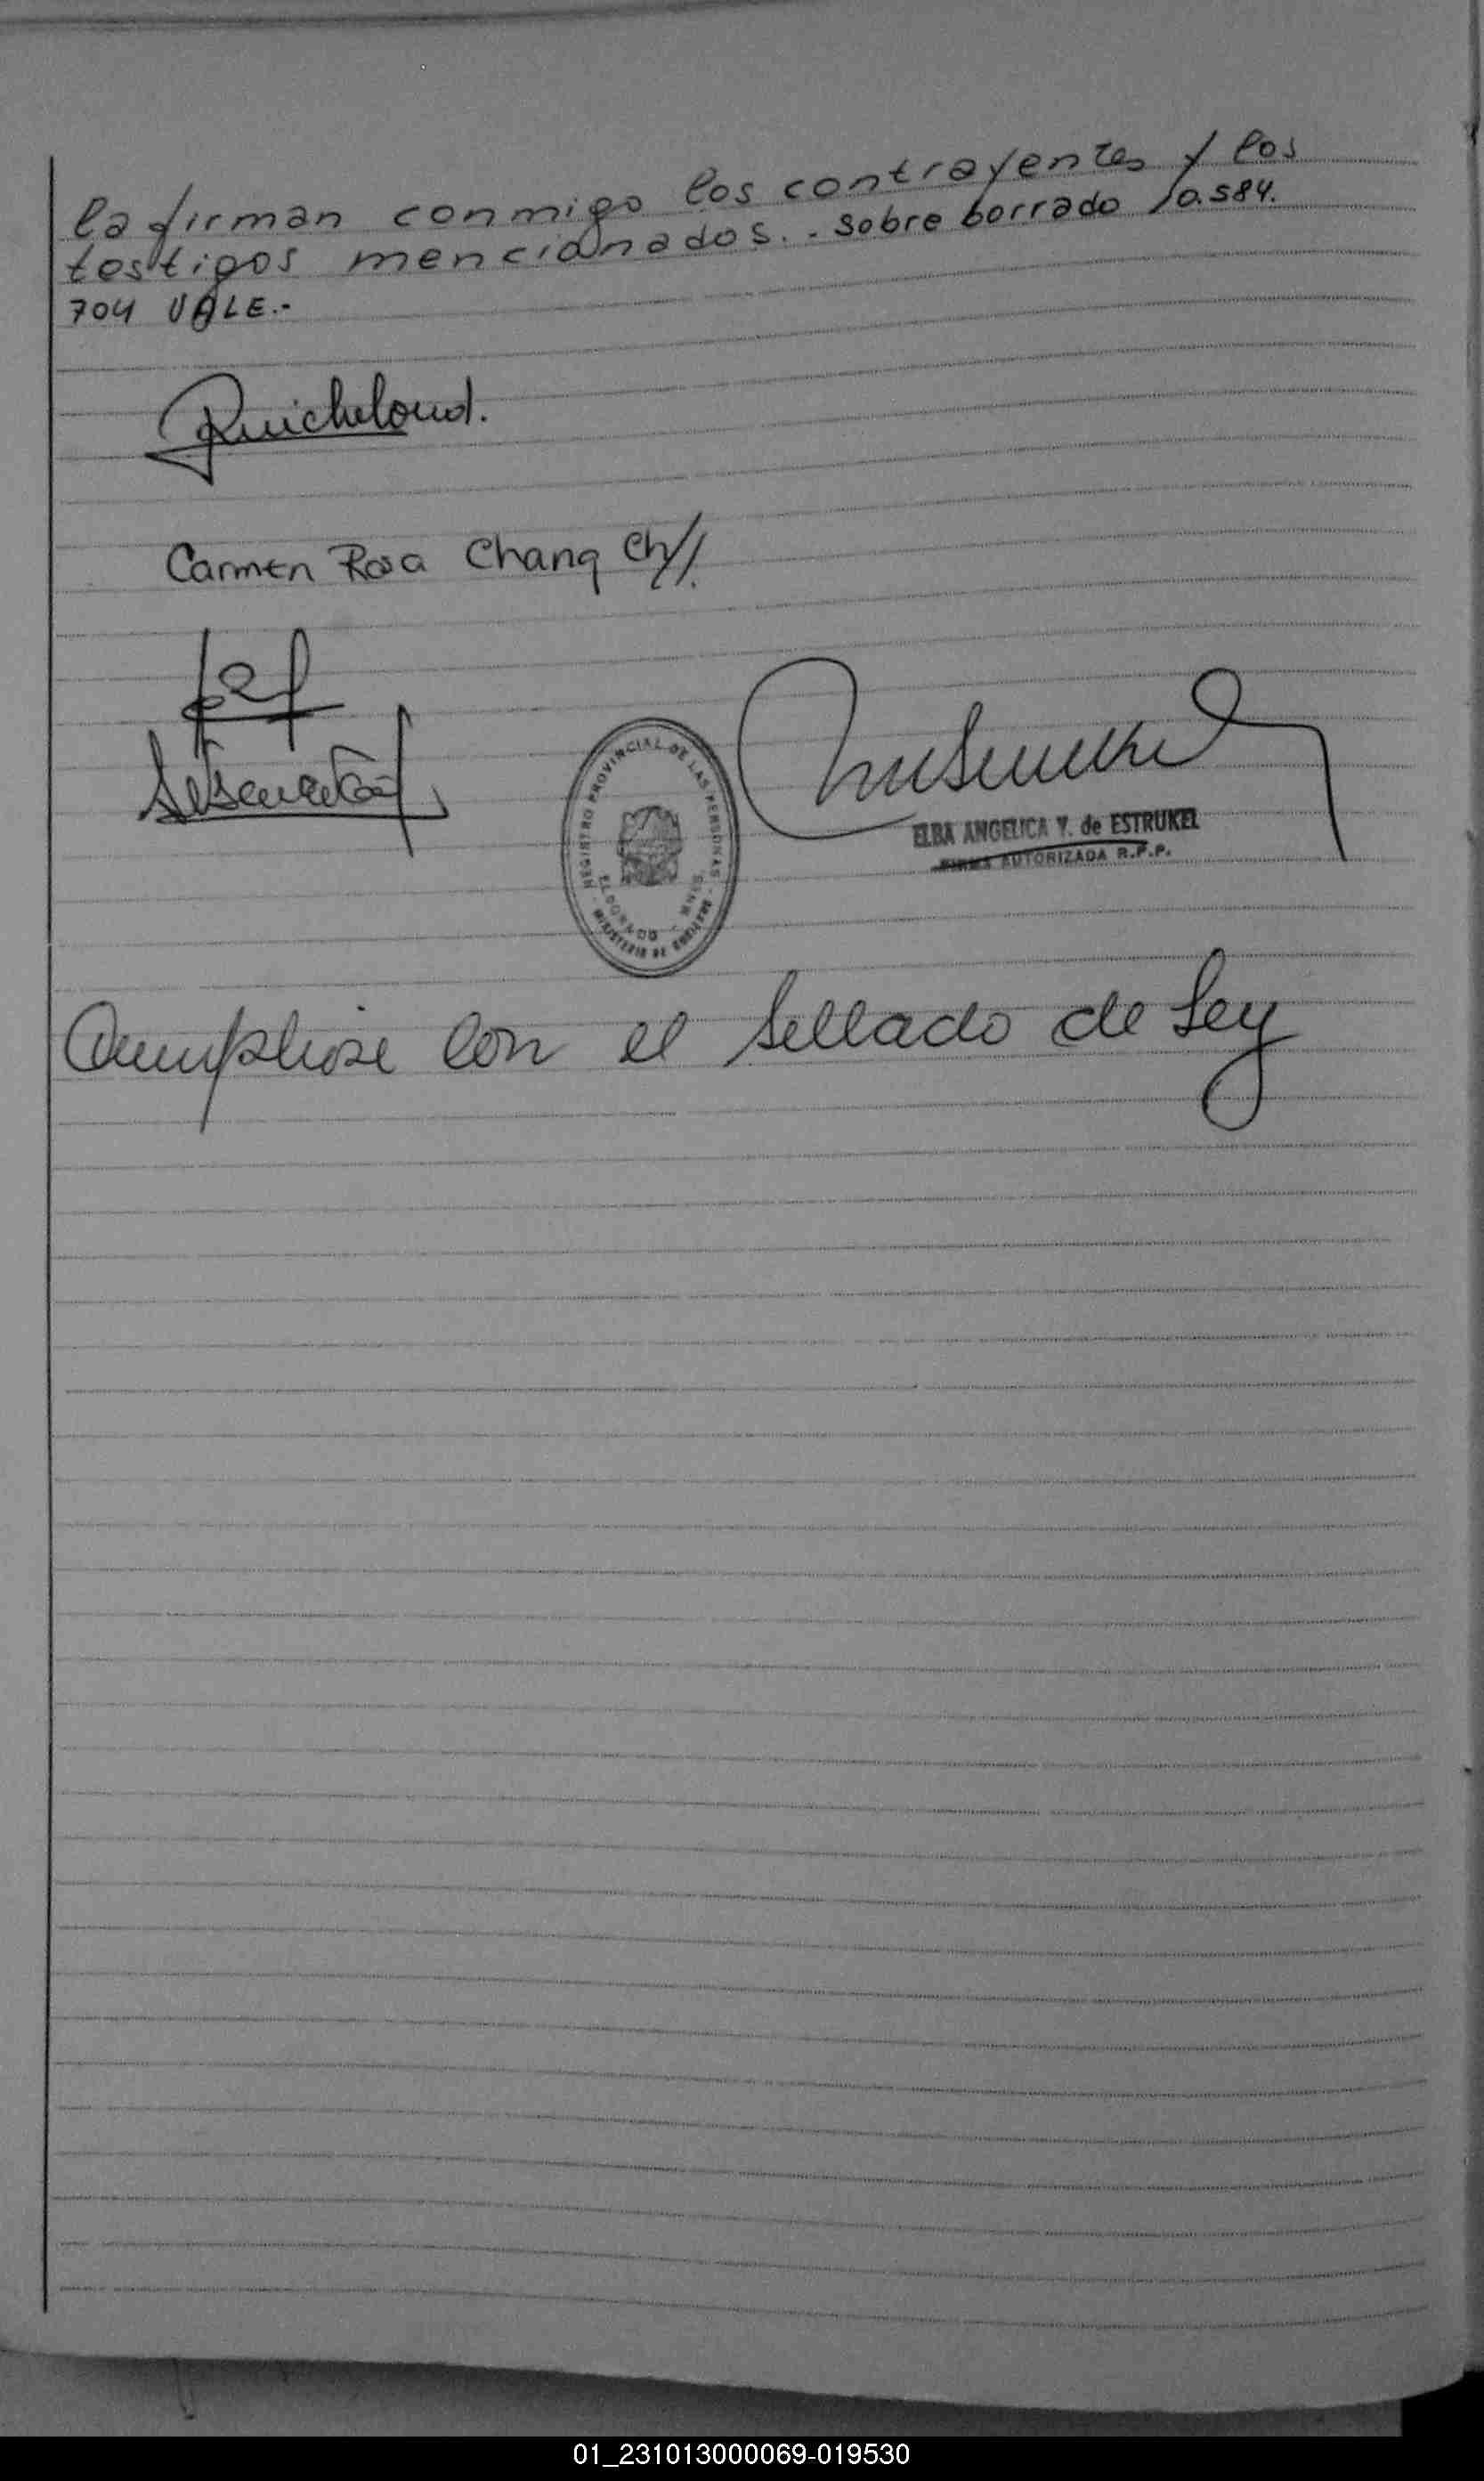 la firman conmigo los contrayentes y los
testigos mencionados.- sobre borrado 10.584.
704 VALE.-
Carmen Rosa Chang Ch.
REGISTRO PROVINCIAL DE LAS PERSONAS - MINISTERIO DE GOBIERNO -
ELDORADO - MNES.
ELBA ANGELICA V. de ESTRUKEL
FIRMA AUTORIZADA R.P.P.
Cumpliose con el Sellado de Ley
01_231013000069-019530